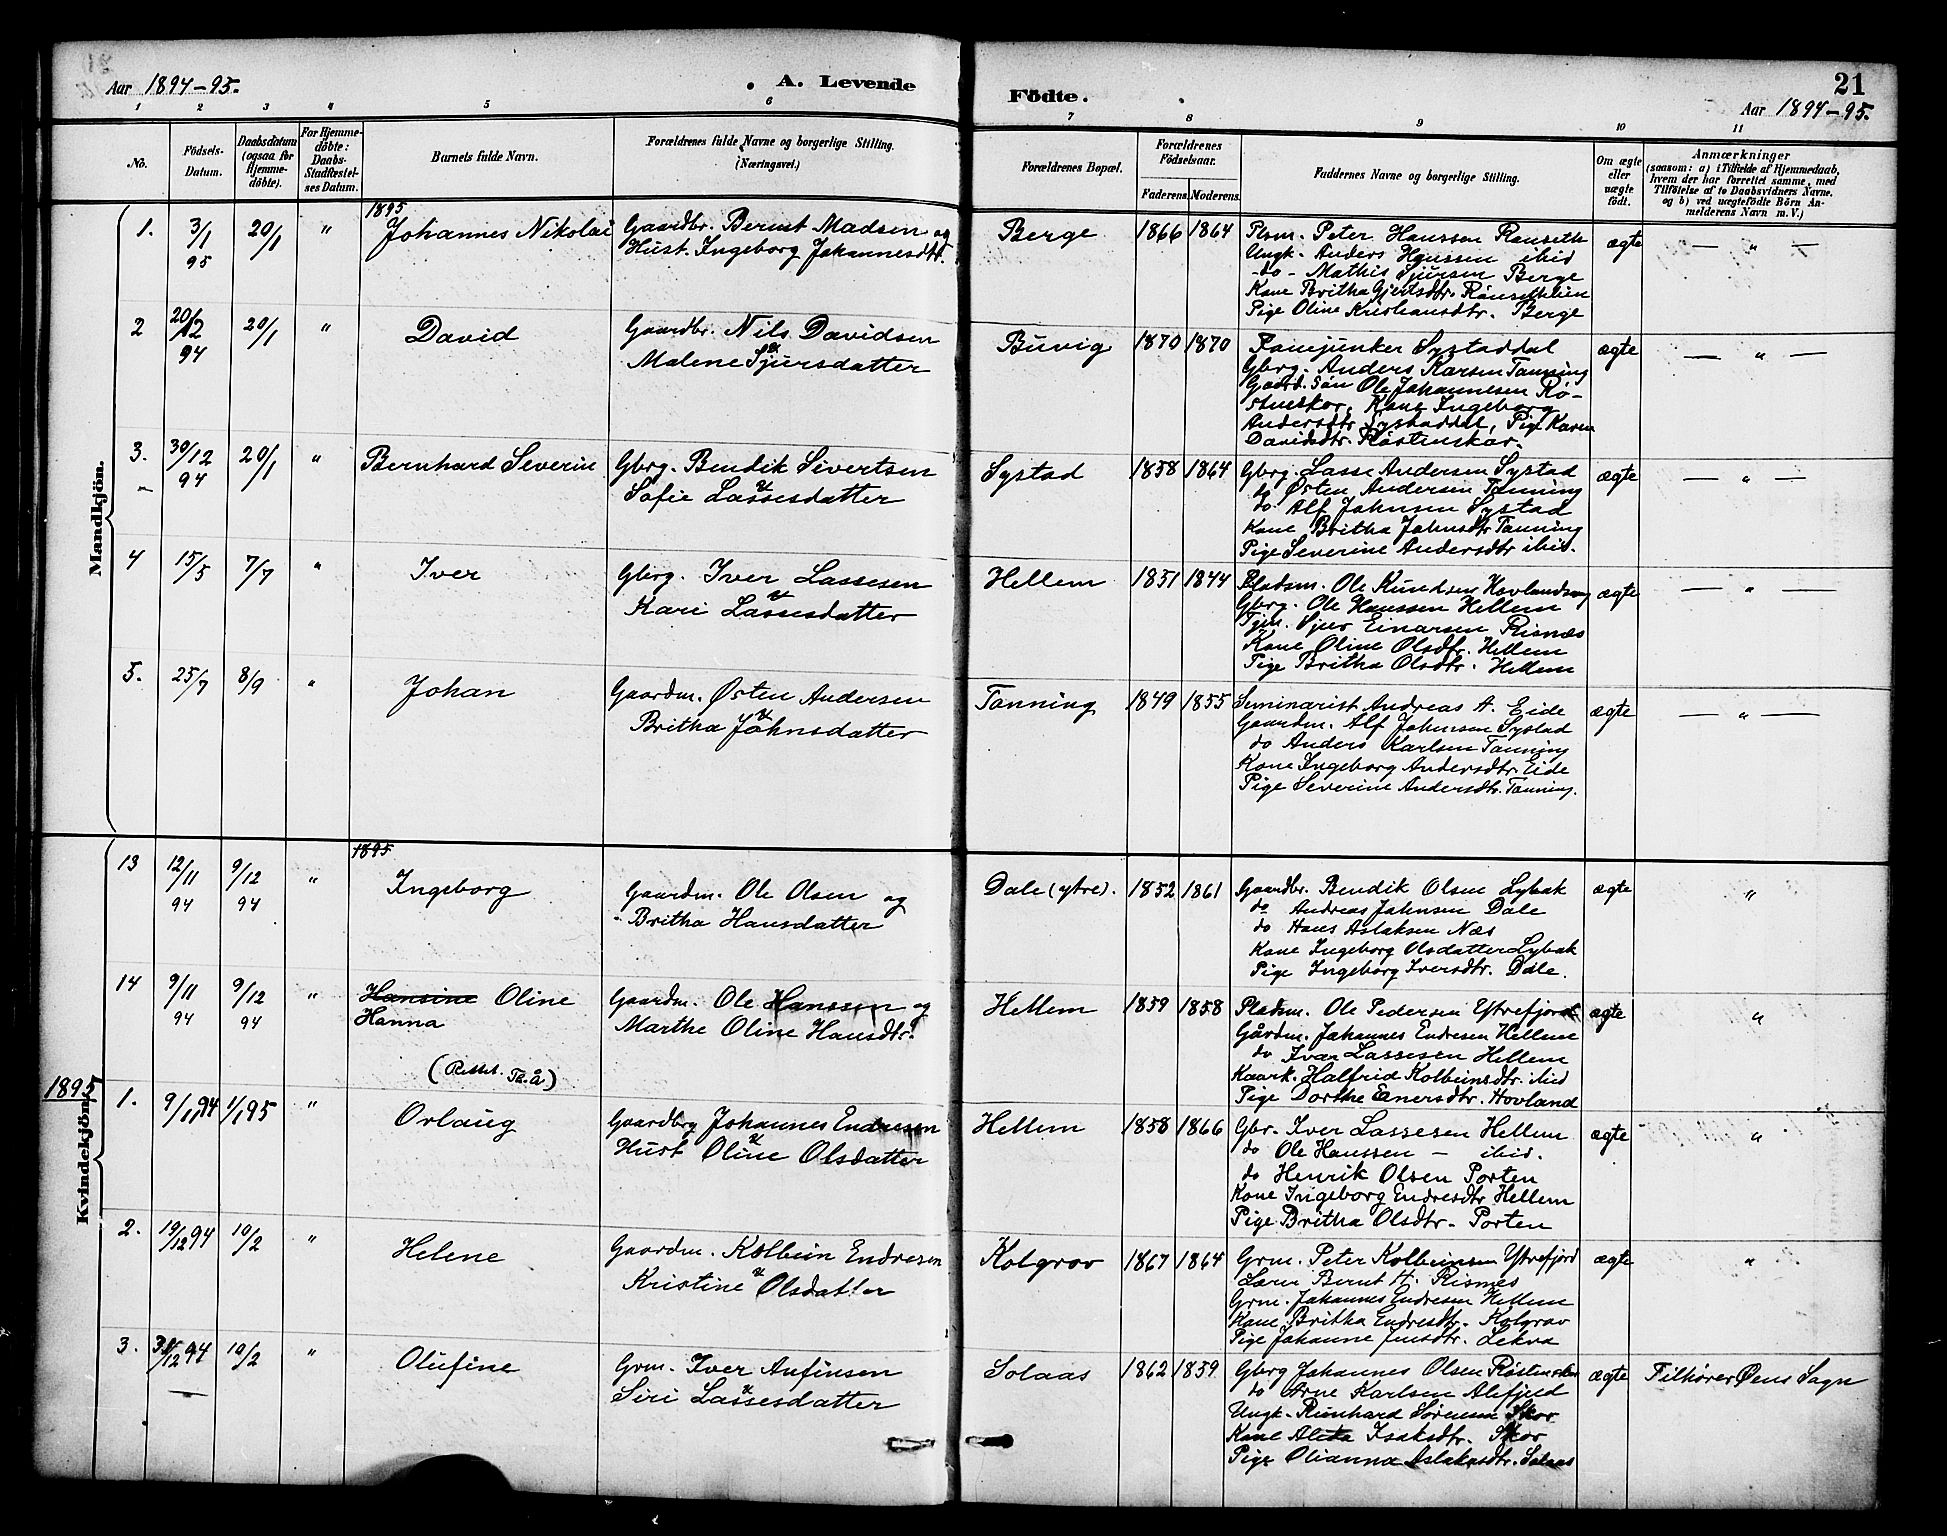 Aar 1894-95.
A. Levende
Födte.
21
Aar 1894-95.
1 2 3 4 5 6 7 8 9 10 11
No.
Födsels-Datum.
Daabsdatum (ogsaa for Hjemme-döbte).
For Hjemme-döbte: Daabs-Stadfæstel-ses Datum.
Barnets fulde Navn.
Forældrenes fulde Navne og borgerlige Stilling.
(Næringsvei.)
Forældrenes Bopæl.
Forældrenes Födselsaar.
Faderens. Moderens.
Faddernes Navne og borgerlige Stilling.
Om ægte eller uægte födt.
Anmærkninger
(saasom: a) i Tilfælde af Hjemmedaab, hvem der har forrettet samme, med Tilföielse af to Daabsvidners Navne. og b) ved uægtefödte Börn An-melderens Navn m. V.)
Mandkjön.
1895
1. 3/1 95 20/1 " Johannes Nikolai
Gaardbr. Bernt Madsen og
Hust. Ingeborg Johannesdtr.
Berge 1866 1864
Plsm. Peter Hanssen Rønseth
Ungk. Anders Hanssen ibid
-do- Mathis Sjursen Berge
Kone Britha Gjertsdtr. Rønsethlien
Pige Oline Kristiansdtr. Berge
ægte — " —
2 20/12 94 20/1 " David
Gaardbr. Nils Davidsen
&
Malene Sjursdatter
Buvig 1870 1870
Fanejunker Systaddal
Gbrg. Anders Karsen Tanning
Gaard. Søn Ole Johannesen Rø-
stneskor, Kone Ingeborg
Andersdtr Systaddal, Pige Karen
Davidsdtr. Røstenskar.
ægte — " —
3. 30/12 94 20/1 " Bernhard Severin
Gbrg. Bendik Sivertsen
&
Sofie Lassesdatter
Systad 1858 1864
Gbrg. Lasse Andersen Systad
do Østen Andersen Tanning
do Alf Johnsen Systad
Kone Britha Johnsdtr Tanning
Pige Severine Andersdtr ibid.
ægte — " —
4 15/5 7/7 " Iver
Gbrg. Iver Lassesen
&
Kari Lassesdatter
Hellem 1851 1844
Pladsm. Ole Knudsen
Gbrg. Ole Hanssen Hellem
Tjen. Sjur Einarsen Risnæs
Kone Oline Olsdtr. Hellem
Pige Britha Olsdtr. Hellem
ægte — " —
5. 25/7 8/9 " Johan
Gaardm. Østen Andersen
&
Britha Johnsdatter
Tanning 1849 1855
Seminarist Andreas A. Eide
Gaardm. Alf Johnsen Systad
do Anders Karlsen Tanning
Kone Ingeborg Andersdtr Eide
Pige Severine Andersdtr. Tanning.
ægte — " —
1895
Kvindekjön.
1895
13 12/11 94 9/12 94 " Ingeborg
Gaardm. Ole Olsen og
Britha Hansdatter
Dale (ytre). 1852 1861
Gaardbr. Bendik Olsen Lybak
do Andreas Johnsen Dale
do Hans Aslaksen Næs
Kone Ingeborg Olsdatter Lybak
Pige Ingeborg Iversdtr. Dale.
ægte "
14 9/11 94 9/12 94 " Hansine Oline
Hanna
Gaardm. Ole Hanssen og
Marthe Oline Hansdtr.
Hellem 1859 1858
Pladsm. Ole Pedersen Ytrefjord
Gårdm. Johannes Endresen Hellem
do Ivar Lassesen Hellem
Kaark. Halfrid Kolbeinsdtr. ibid
Pige Dorthe Enersdtr. Hovland
ægte "
1. 9/11 94 1/1 95 " Orlaug
Gaardbrg Johannes Endresen
&
Hust Oline Olsdatter
Hellem 1858 1866
Gbr. Iver Lassesen Hellem
do Ole Hanssen — ibid.
do Henrik Olsen Porten
Kone Ingeborg Endresdtr Hellem
Pige Britha Olsdtr. Porten
ægte "
2. 19/12 94 10/2 " Helene
Gaardm. Kolbein Endresen
&
Kristine Olsdatter
Kolgrov 1867 1864
Grm. Peter Kolbeinsen Ytrefjord
Lærer Bernt H. Risnes
Grm. Johannes Endresen Hellem
Kone Britha Endresdtr. Kolgrov
Pige Johanne Jensdtr. Lekva
ægte "
3. 31/12 94 10/2 " Olufine
Grm. Iver Anfinsen
&
Siri Lassesdatter
Solaas 1862 1859
Gbrg Johannes Olsen Røstenskar
do Arne Karlsen Alefjeld
Ungk. Reinhard Sørensen Skor
Kone Aleta Isaksdtr. Skor
Pige Olianna Aslaksdtr. Solaas
ægte Tilhører Øens Sogn